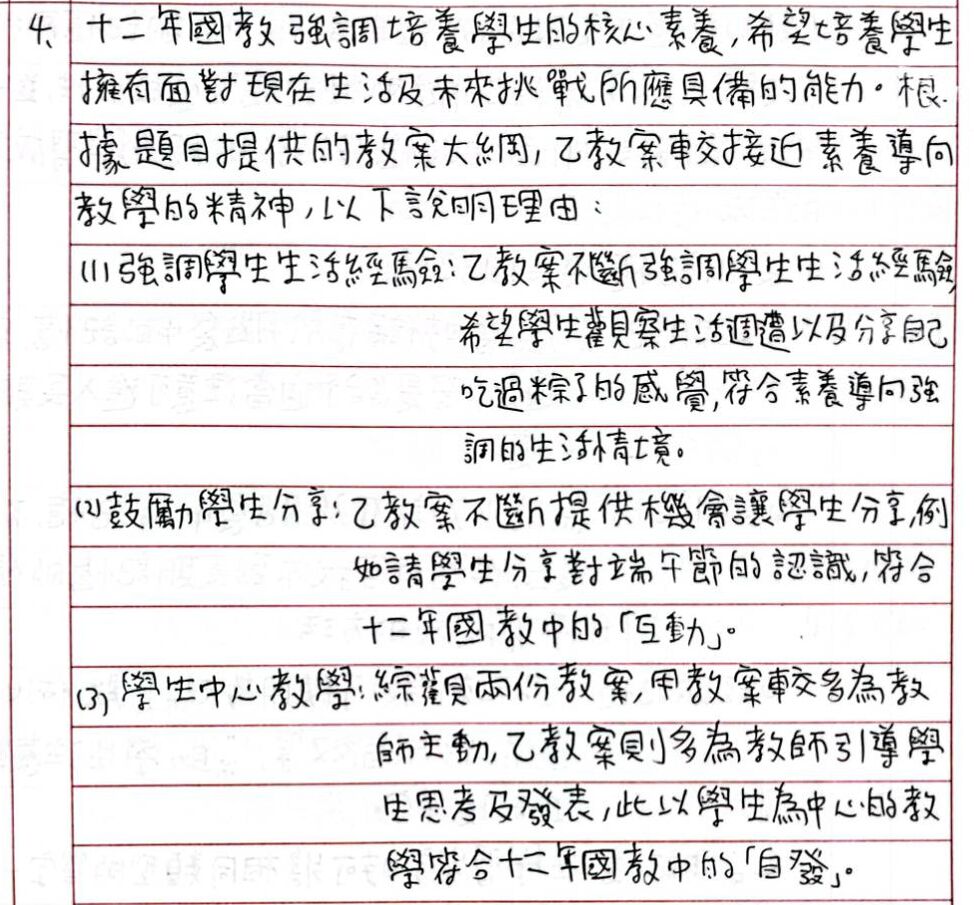 4、十二年國教強調培養學生的核心素養,希望培養學生
擁有面對現在生活及未來挑戰所應具備的能力。根
據題目提供的教案大綱,乙教案較接近素養導向
教學的精神,以下說明理由:
(1)強調學生生活經驗:乙教案不斷強調學生生活經驗,
希望學生觀察生活週遭以及分享自己
吃過粽子的感覺,符合素養導向強
調的生活情境。
(2)鼓勵學生分享:乙教案不斷提供機會讓學生分享,例
如請學生分享對端午節的認識,符合
十二年國教中的「互動」。
(3)學生中心教學:綜觀兩份教案,甲教案較多為教
師主動,乙教案則多為教師引導學
生思考及發表,此以學生為中心的教
學符合十二年國教中的「自發」。